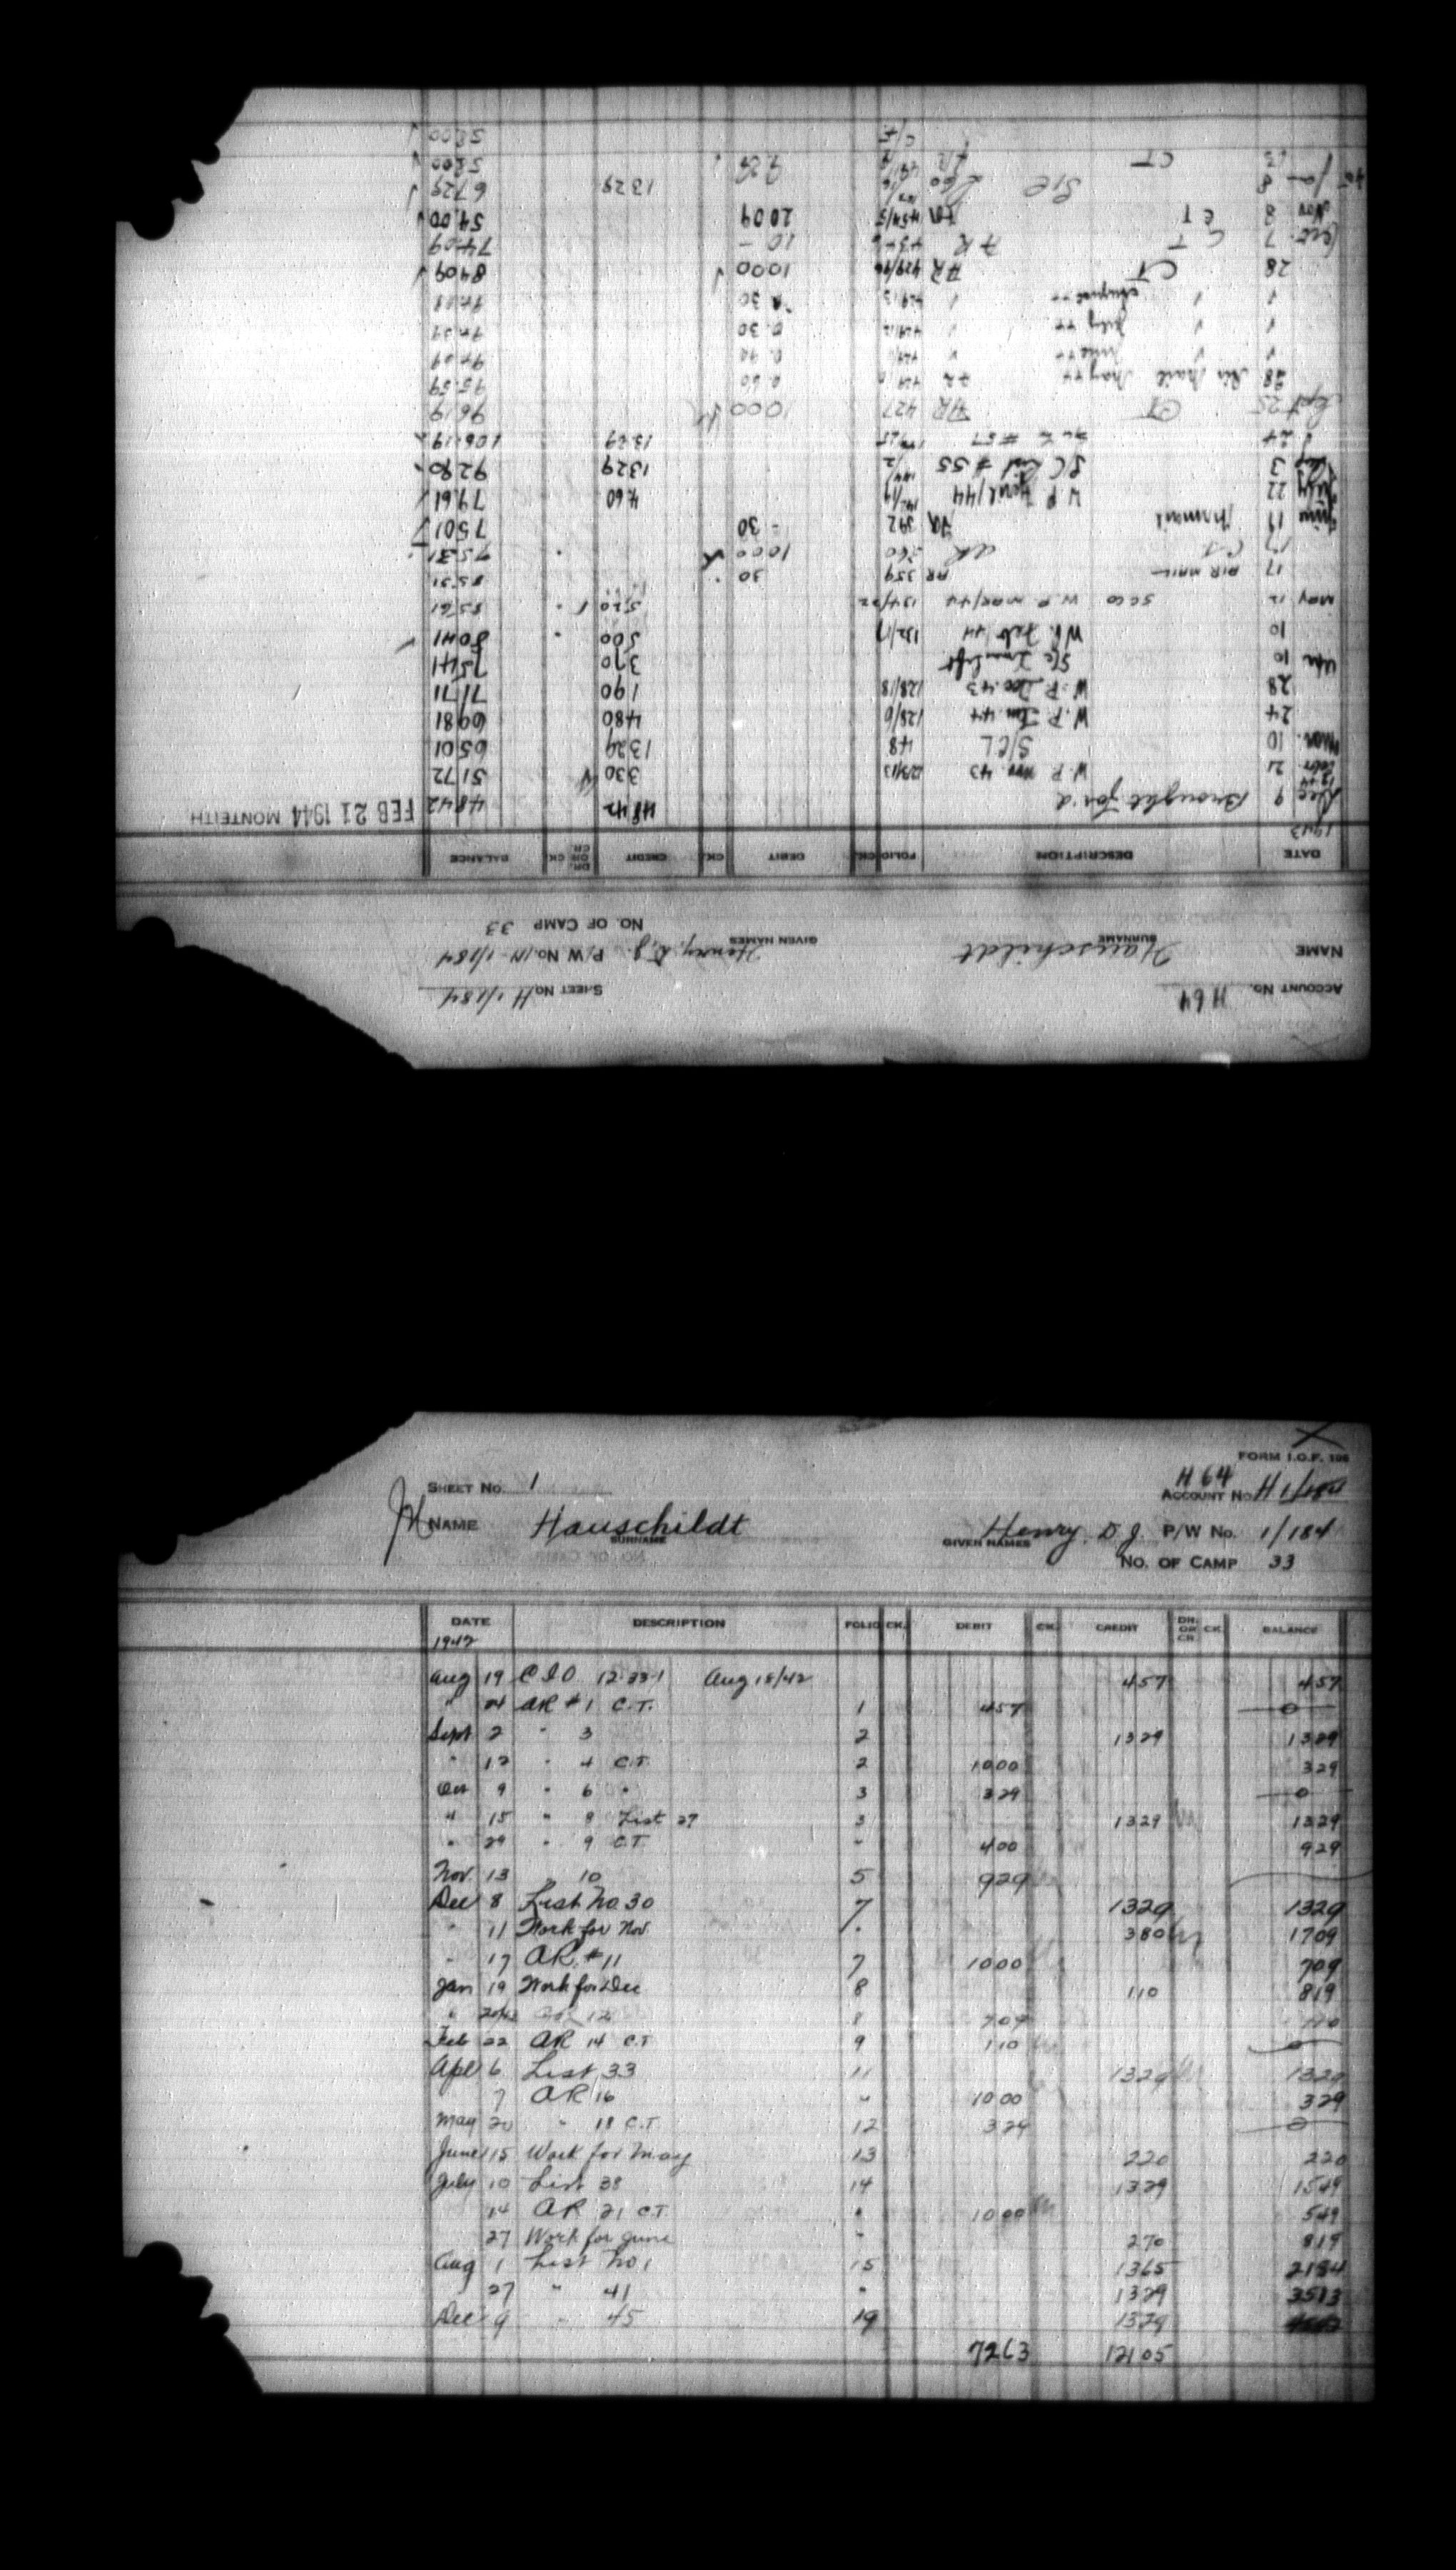 FORM I.O.F. 108
SHEET No. 1 H 64 ACCOUNT No. H 1/184
NAME Hauschildt Henry. D.J. P/W No. 1/184
SURNAME GIVEN NAMES
No. OF CAMP 33
DATE DESCRIPTION FOLIO CK. DEBIT CK. CREDIT DR. OR CR. CK. BALANCE
1942
Aug 19 C.I.O. 12-33-1 Aug 18/42 457 457
" 24 AR #1 C.T. 1 457 —0—
Sept 2 " 3 2 1329 1329
" 12 " 4 C.T. 2 1000 329
Oct 9 " 6 " 3 329 —0—
" 15 " 8 List 27 3 1329 1329
" 29 " 9 C.T. " 400 929
Nov. 13 10 5 929
Dec 8 List No. 30 7 1329 1329
" 11 Work for Nov 380 1709
" 17 AR. #11 7 1000 709
Jan 19 Work for Dec 8 110 819
" AR 12 8 709 110
Feb 22 AR 14 C.T. 9 110 —0—
Apl 6 List 33 11 1329 1329
7 AR 16 " 1000 329
May 20 " 18 C.T. 12 329 —0—
June 15 Work for May 13 220 220
July 10 List 38 14 1329 1549
14 AR 21 C.T. " 1000 549
27 Work for June " 270 819
Aug 1 List No 1 15 1365 2184
27 " 41 " 1329 3513
Dec 9 " 45 19 1329
7263 12105
ACCOUNT No. H 64 SHEET No. H 1/184
NAME Hauschildt Henry, D.J. P/W No. 1/184
SURNAME GIVEN NAMES
NO. OF CAMP 33
DATE DESCRIPTION FOLIO CK. DEBIT CK. CREDIT DR. OR CR. CK. BALANCE
1943
Dec 9 Brought For'd 4842 4842 FEB 21 1944 MONTEITH
21 W.P. Nov 43 123/13 330 5172
Mar. 10 S/CL 48 1329 6501
24 W.P. Jan. 44 128/6 480 6981
28 W.P. Dec. 43 128/18 190 7171
10 S/C 370 7541
10 W.P. Feb 44 132/17 500 8041
MAY 12 5CCO W.P. MAR/44 134/22 520 8561
17 AIR MAIL AR 359 30 8531
17 C.T. AR 360 1000 7531
June 19 AR 392 - 30 7501
July 22 W P 142/19 460 7961
Aug 3 SC List #55 1329 9280
24 #57 1329 10619
Sept 25 CT AR 427 1000 9619
28 Air Mail May 44 AR 0.60 9559
" " June 44 "
" " July 44 " 0.30
" " August 44 " 0.30
28 CT AR 1000 8409
Oct. 7 C T AR 10 - 7409
Nov 8 CT AR 454/5 2009 5400
45 Jan 8 S/C 260 1329 6729
13 CT AR 5200
C/F 5200